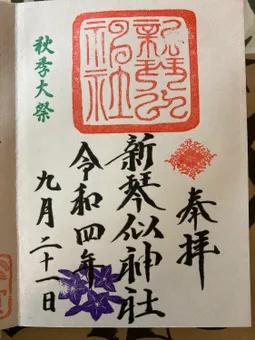 奉拝
新琴似神社
令和四年
九月二十一日
秋季大祭